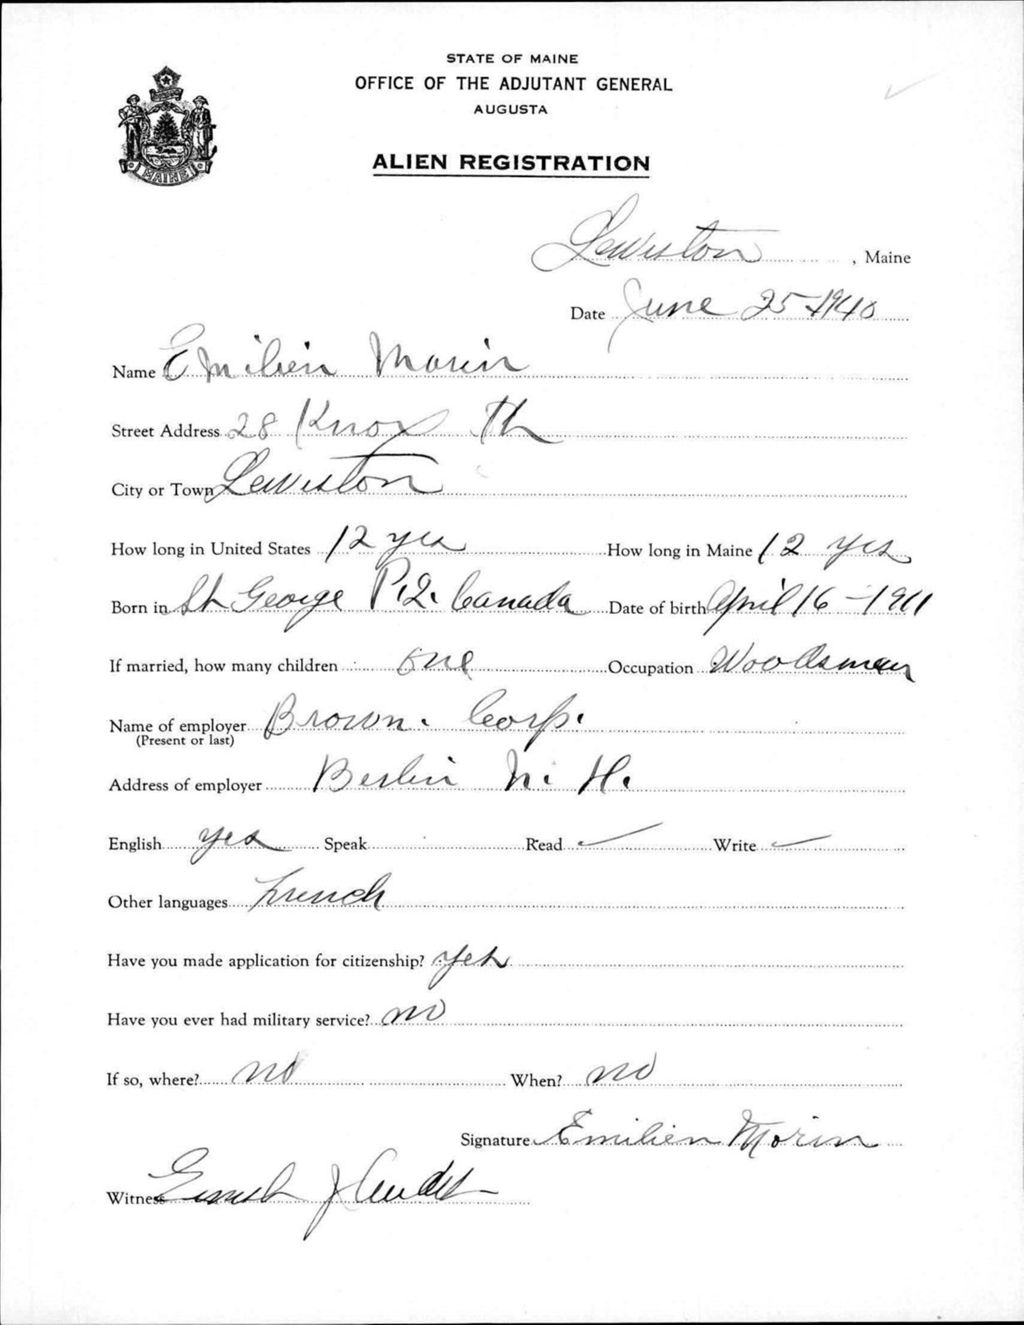 STATE OF MAINE
OFFICE OF THE ADJUTANT GENERAL
AUGUSTA
ALIEN REGISTRATION
MAINE
Lewiston, Maine
Date June 25-1940
Name Emilien Morin
Street Address 28 Knox
City or Town Lewiston
How long in United States 12 yrs How long in Maine 12 yrs
Born in St George P.Q. Canada Date of birth April 16-1911
If married, how many children one Occupation Woodsman
Name of employer Brown. Corp.
(Present or last)
Address of employer Berlin N. H.
English yes Speak Read ✓ Write ✓
Other languages French
Have you made application for citizenship? yes
Have you ever had military service? no
If so, where? no When? no
Signature Emilien Morin
Witness Ernest J Audet